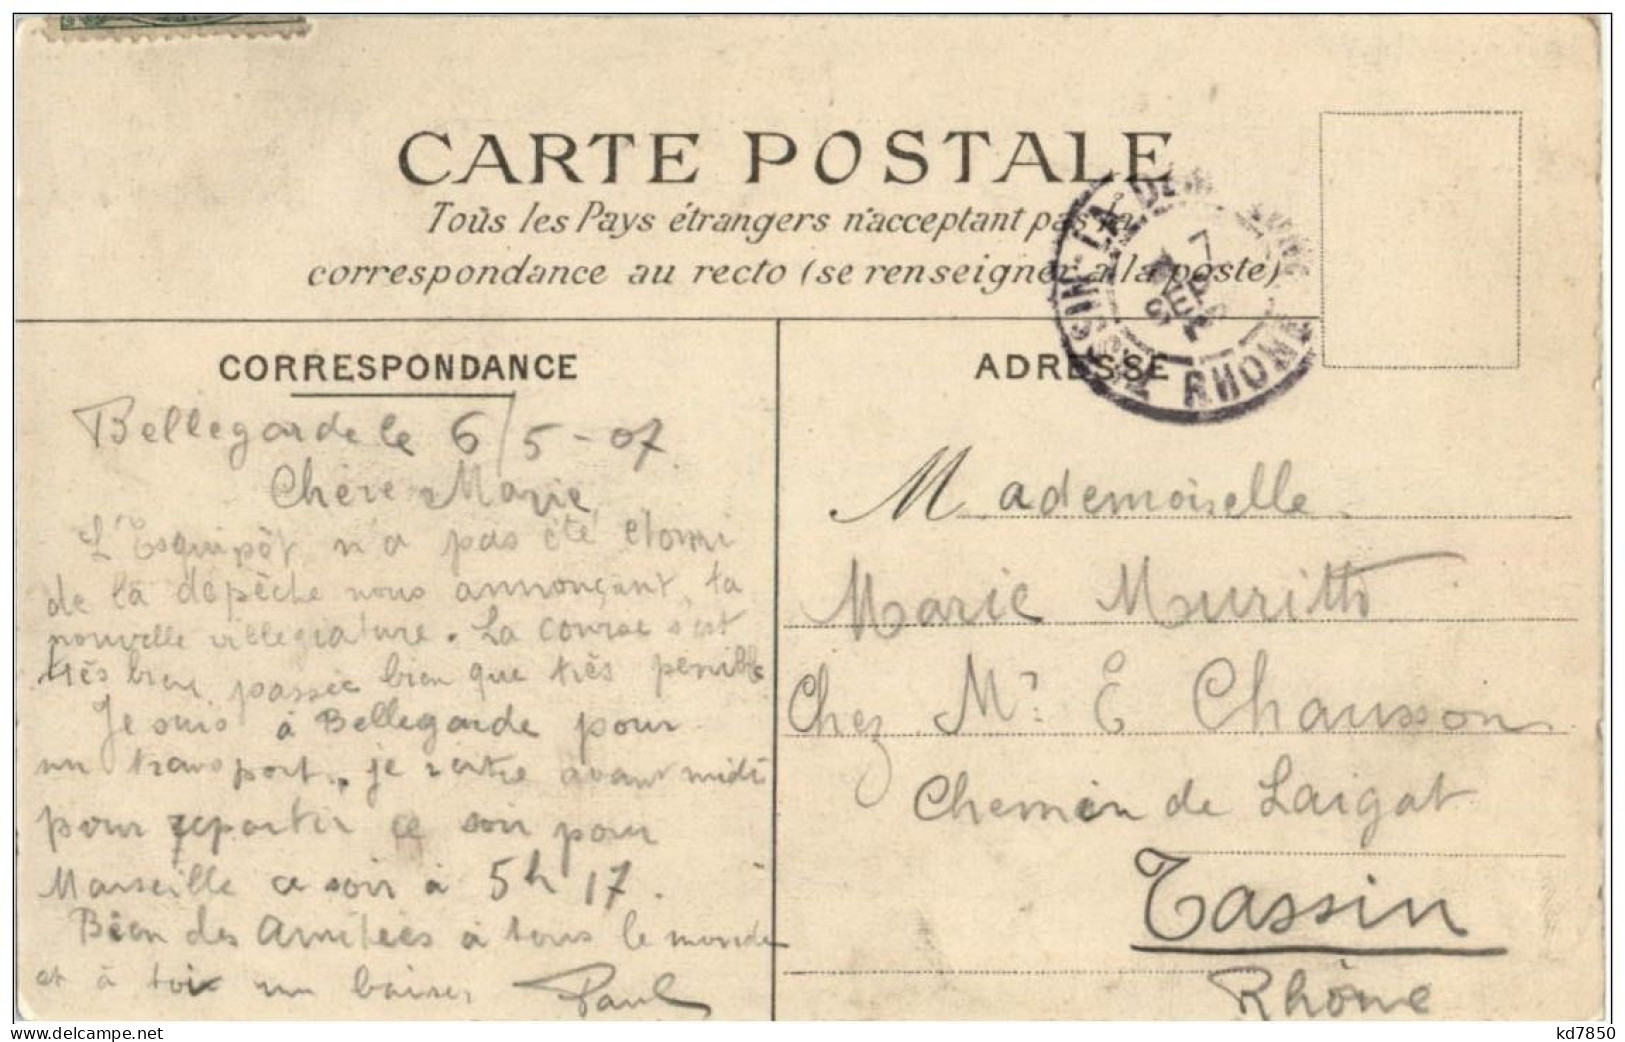 CARTE POSTALE
Tous les Pays étrangers n'acceptant pas la
correspondance au recto (se renseigner à la poste)
CORRESPONDANCE
Bellegarde le 6/5-07.
Chère Marie
L'Esquipôt n'a pas été étonné
de la dépêche nous annonçant, ta
nouvelle villégiature. La course s'est
très bien passée bien que très pénible
Je suis à Bellegarde pour
un transport.. je rentre avant midi
pour repartir ce soir pour
Marseille ce soir à 5h 17.
Bien des Amitiées à tous le monde
et à toi un baiser Paul
ADRESSE
7
SEPT
RHONE
Mademoiselle
Marie Muritto
Chez Mr E Chausson
Chemin de Laigat
Tassin
Rhône
kd7850